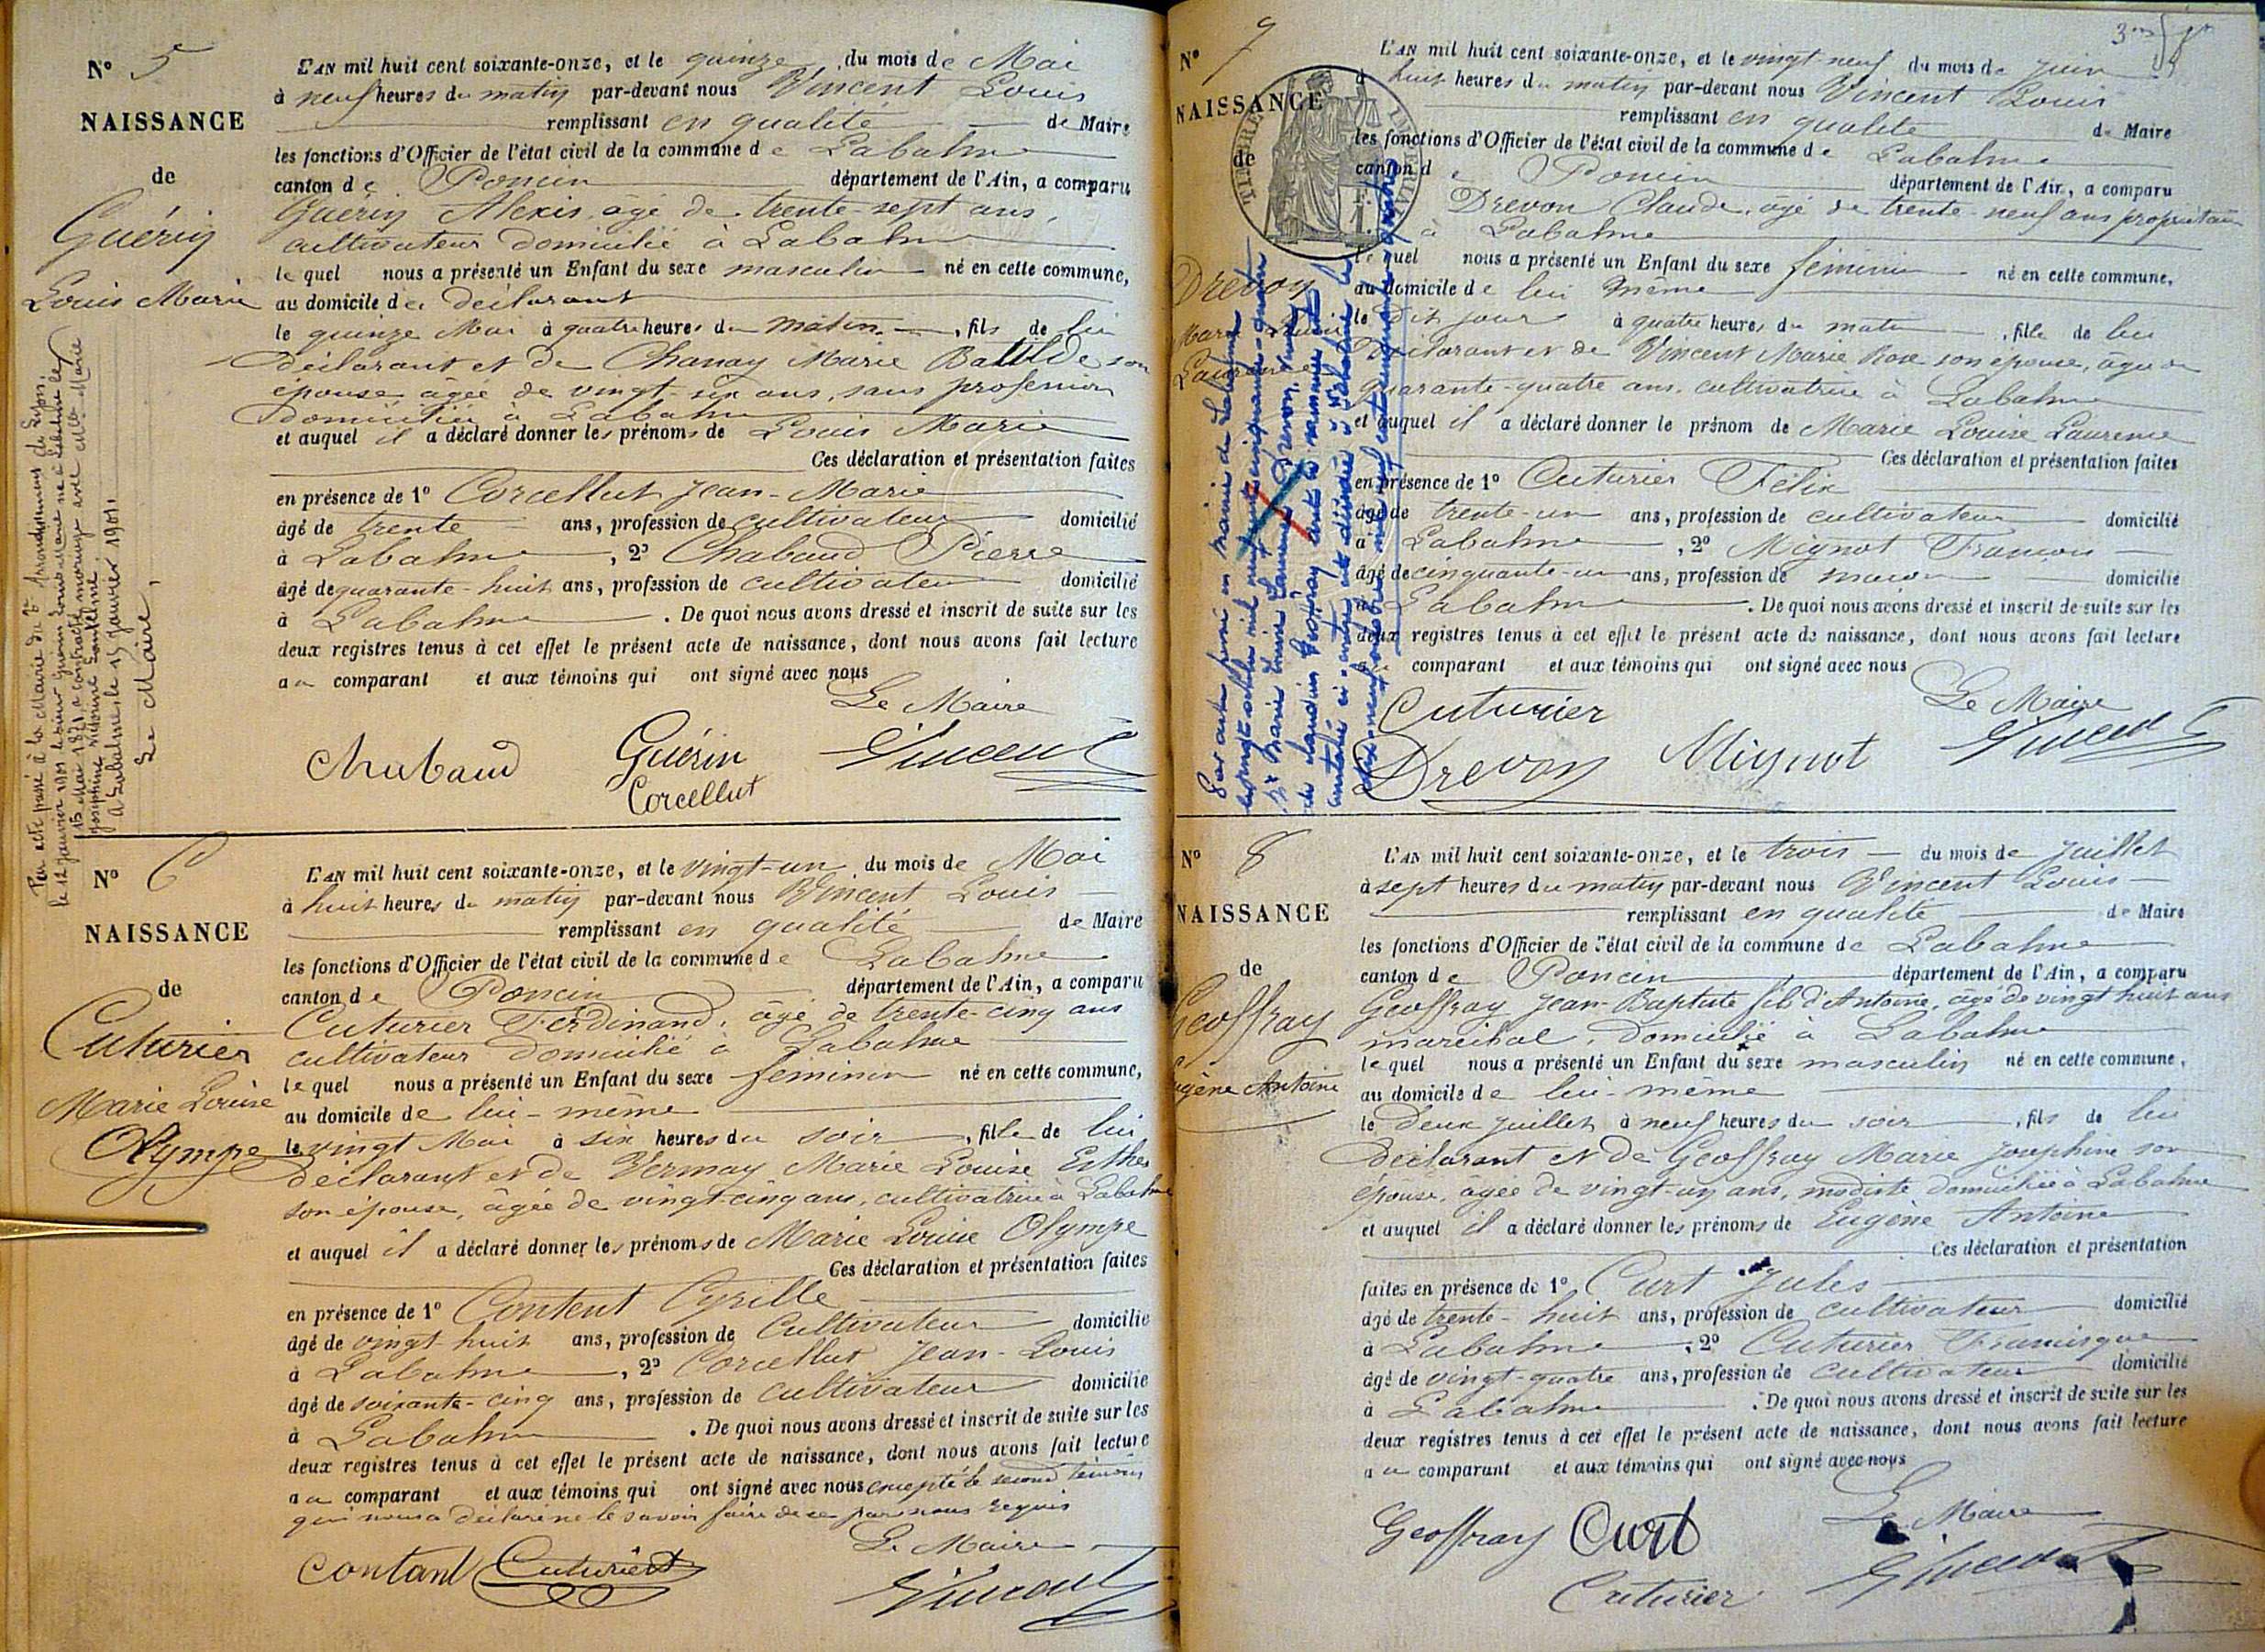 N° 5
NAISSANCE
de
Guérin
Louis Marie
L'AN mil huit cent soixante-onze, et le quinze du mois de Mai
à neuf heures du matin par-devant nous Vincent Louis
remplissant en qualité de Maire
les fonctions d'Officier de l'état civil de la commune de Labalme
canton de Poncin département de l'Ain, a comparu
Guérin Alexis, âgé de trente-sept ans,
cultivateur domicilié à Labalme
lequel nous a présenté un Enfant du sexe masculin né en cette commune,
au domicile du déclarant
le quinze Mai à quatre heures du matin, fils de lui
déclarant et de Chanay Marie Batilde son
épouse âgée de vingt-six ans, sans profession
domiciliée à Labalme
et auquel il a déclaré donner les prénoms de Louis Marie
Ces déclaration et présentation faites
en présence de 1° Corcellut Jean-Marie
âgé de trente ans, profession de cultivateur domicilié
à Labalme, 2° Chabaud Pierre
âgé de quarante-huit ans, profession de cultivateur domicilié
à Labalme. De quoi nous avons dressé et inscrit de suite sur les
deux registres tenus à cet effet le présent acte de naissance, dont nous avons fait lecture
au comparant et aux témoins qui ont signé avec nous
Le Maire
Chabaud Guérin Vincent
Corcellut
Par acte passé à la Mairie du arrondissement de Lyon,
le 12 janvier 1901 le sieur Guérin Louis Marie né à Labalme le
15 Mai 1871, a contracté mariage avec Marie
Joséphine
à Labalme, le 15 janvier 1901.
Le Maire,
N° 6
NAISSANCE
de
Cuturier
Marie Louise
Olympe
L'AN mil huit cent soixante-onze, et le vingt-un du mois de Mai
à huit heures du matin par-devant nous Vincent Louis
remplissant en qualité de Maire
les fonctions d'Officier de l'état civil de la commune de Labalme
canton de Poncin département de l'Ain, a comparu
Cuturier Ferdinand, âgé de trente-cinq ans
cultivateur domicilié à Labalme
lequel nous a présenté un Enfant du sexe féminin né en cette commune,
au domicile de lui-même
le vingt Mai à six heures du soir, fille de lui
déclarant et de Vermay Marie Louise Esther
son épouse, âgée de vingt-cinq ans, cultivatrice à Labalme
et auquel il a déclaré donner les prénoms de Marie Louise Olympe
Ces déclaration et présentation faites
en présence de 1° Content Cyrille
âgé de vingt-huit ans, profession de Cultivateur domicilié
à Labalme, 2° Corcellut Jean-Louis
âgé de soixante-cinq ans, profession de cultivateur domicilié
à Labalme. De quoi nous avons dressé et inscrit de suite sur les
deux registres tenus à cet effet le présent acte de naissance, dont nous avons fait lecture
au comparant et aux témoins qui ont signé avec nous excepté le second témoin
qui nous a déclaré ne le savoir faire de ce par nous requis
Le Maire
Contant Cuturier Vincent
N° 7
NAISSANCE
de
Drevon
Marie Louise
Laurence
TIMBRE IMPERIAL
L'AN mil huit cent soixante-onze, et le vingt-neuf du mois de Juin
à huit heures du matin par-devant nous Vincent Louis
remplissant en qualité de Maire
les fonctions d'Officier de l'état civil de la commune de Labalme
canton de Poncin département de l'Ain, a comparu
Drevon Claude, âgé de trente-neuf ans propriétaire
à Labalme
lequel nous a présenté un Enfant du sexe féminin né en cette commune,
au domicile de lui même
le dit jour à quatre heures du matin, fille de lui
déclarant et de Vincent Marie Rose son épouse, âgée de
quarante-quatre ans, cultivatrice à Labalme
et auquel il a déclaré donner le prénom de Marie Louise Laurence
Ces déclaration et présentation faites
en présence de 1° Cuturier Félix
âgé de trente-un ans, profession de cultivateur domicilié
à Labalme, 2° Mignot François
âgé de cinquante-un ans, profession de maçon domicilié
à Labalme. De quoi nous avons dressé et inscrit de suite sur les
deux registres tenus à cet effet le présent acte de naissance, dont nous avons fait lecture
au comparant et aux témoins qui ont signé avec nous
Le Maire
Cuturier Vincent
Drevon Mignot
Par acte passé en mairie de Labalme
le vingt octobre mil neuf cent cinquante quatre
Marie Louise Laurence Drevon, veuve
de Claudius Geoffray
N° 8
NAISSANCE
de
Geoffray
Eugène Antoine
L'AN mil huit cent soixante-onze, et le trois du mois de Juillet
à sept heures du matin par-devant nous Vincent Louis
remplissant en qualité de Maire
les fonctions d'Officier de l'état civil de la commune de Labalme
canton de Poncin département de l'Ain, a comparu
Geoffray Jean-Baptiste fils d'Antoine, âgé de vingt huit ans
maréchal, domicilié à Labalme
lequel nous a présenté un Enfant du sexe masculin né en cette commune,
au domicile de lui-même
le deux juillet à neuf heures du soir, fils de lui
déclarant et de Geoffray Marie Joséphine son
épouse, âgée de vingt-un ans, modiste domiciliée à Labalme
et auquel il a déclaré donner les prénoms de Eugène Antoine
Ces déclaration et présentation
faites en présence de 1° Curt Jules
âgé de trente-huit ans, profession de cultivateur domicilié
à Labalme, 2° Cuturier Francisque
âgé de vingt-quatre ans, profession de cultivateur domicilié
à Labalme. De quoi nous avons dressé et inscrit de suite sur les
deux registres tenus à cet effet le présent acte de naissance, dont nous avons fait lecture
au comparant et aux témoins qui ont signé avec nous
Le Maire
Geoffray Curt Vincent
Cuturier